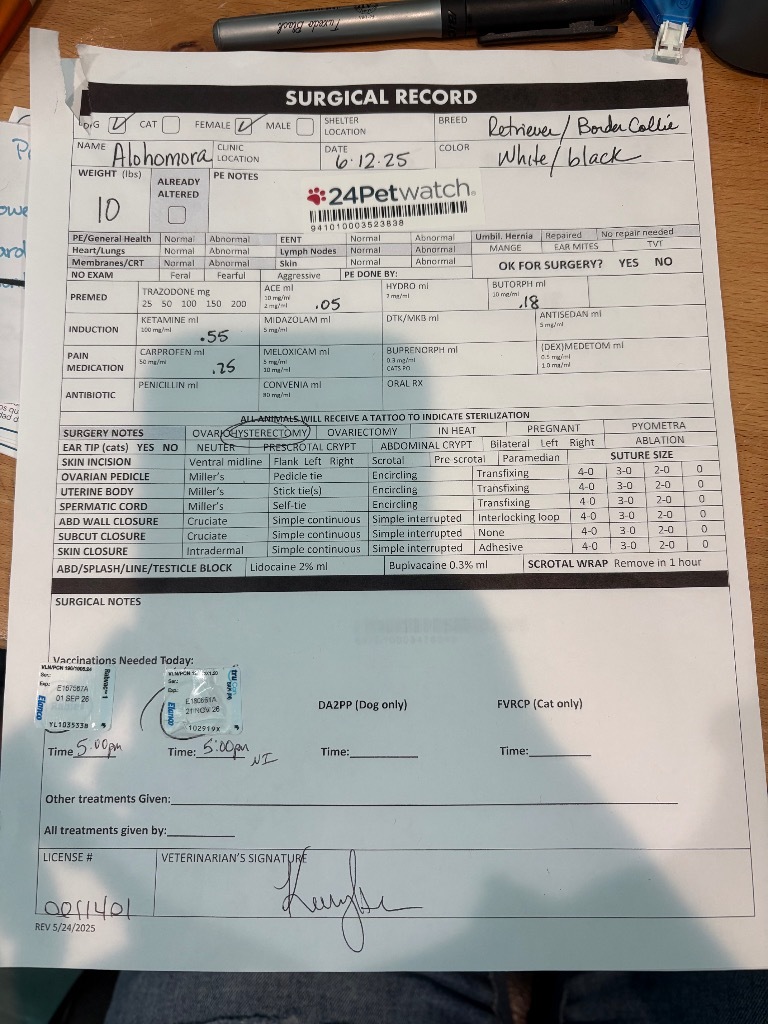 Tuxedo Black
SURGICAL RECORD
DOG CAT FEMALE MALE SHELTER LOCATION BREED Retriever/Border Collie
NAME Alohomora CLINIC LOCATION DATE 6.12.25 COLOR White/black
WEIGHT (lbs) 10 ALREADY ALTERED PE NOTES
24Petwatch
941010003523838
PE/General Health Normal Abnormal EENT Normal Abnormal Umbil. Hernia Repaired No repair needed
Heart/Lungs Normal Abnormal Lymph Nodes Normal Abnormal MANGE EAR MITES TVT
Membranes/CRT Normal Abnormal Skin Normal Abnormal OK FOR SURGERY? YES NO
NO EXAM Feral Fearful Aggressive PE DONE BY:
PREMED TRAZODONE mg 25 50 100 150 200 ACE ml 10 mg/ml 2 mg/ml .05 HYDRO ml 2 mg/ml BUTORPH ml 10 mg/ml .18
INDUCTION KETAMINE ml 100 mg/ml .55 MIDAZOLAM ml 5 mg/ml DTK/MKB ml ANTISEDAN ml 5 mg/ml
PAIN MEDICATION CARPROFEN ml 50 mg/ml .25 MELOXICAM ml 5 mg/ml 10 mg/ml BUPRENORPH ml 0.3 mg/ml CATS PO (DEX)MEDETOM ml 0.5 mg/ml 1.0 mg/ml
ANTIBIOTIC PENICILLIN ml CONVENIA ml 80 mg/ml ORAL RX
ALL ANIMALS WILL RECEIVE A TATTOO TO INDICATE STERILIZATION
SURGERY NOTES OVARIOHYSTERECTOMY OVARIECTOMY IN HEAT PREGNANT PYOMETRA
EAR TIP (cats) YES NO NEUTER PRESCROTAL CRYPT ABDOMINAL CRYPT Bilateral Left Right ABLATION
SKIN INCISION Ventral midline Flank Left Right Scrotal Pre-scrotal Paramedian SUTURE SIZE
OVARIAN PEDICLE Miller's Pedicle tie Encircling Transfixing 4-0 3-0 2-0 0
UTERINE BODY Miller's Stick tie(s) Encircling Transfixing 4-0 3-0 2-0 0
SPERMATIC CORD Miller's Self-tie Encircling Transfixing 4-0 3-0 2-0 0
ABD WALL CLOSURE Cruciate Simple continuous Simple interrupted Interlocking loop 4-0 3-0 2-0 0
SUBCUT CLOSURE Cruciate Simple continuous Simple interrupted None 4-0 3-0 2-0 0
SKIN CLOSURE Intradermal Simple continuous Simple interrupted Adhesive 4-0 3-0 2-0 0
ABD/SPLASH/LINE/TESTICLE BLOCK Lidocaine 2% ml Bupivacaine 0.3% ml SCROTAL WRAP Remove in 1 hour
SURGICAL NOTES
Vaccinations Needed Today:
Ser: E167567A
Exp: 01 SEP 26
Elanco
YL103533B
Ser: E180651A
Exp: 21 NOV 26
Elanco
102919X
DA2PP (Dog only) FVRCP (Cat only)
Time 5:00pm Time: 5:00pm NI Time: Time:
Other treatments Given:
All treatments given by:
LICENSE # VETERINARIAN'S SIGNATURE
0011401
REV 5/24/2025